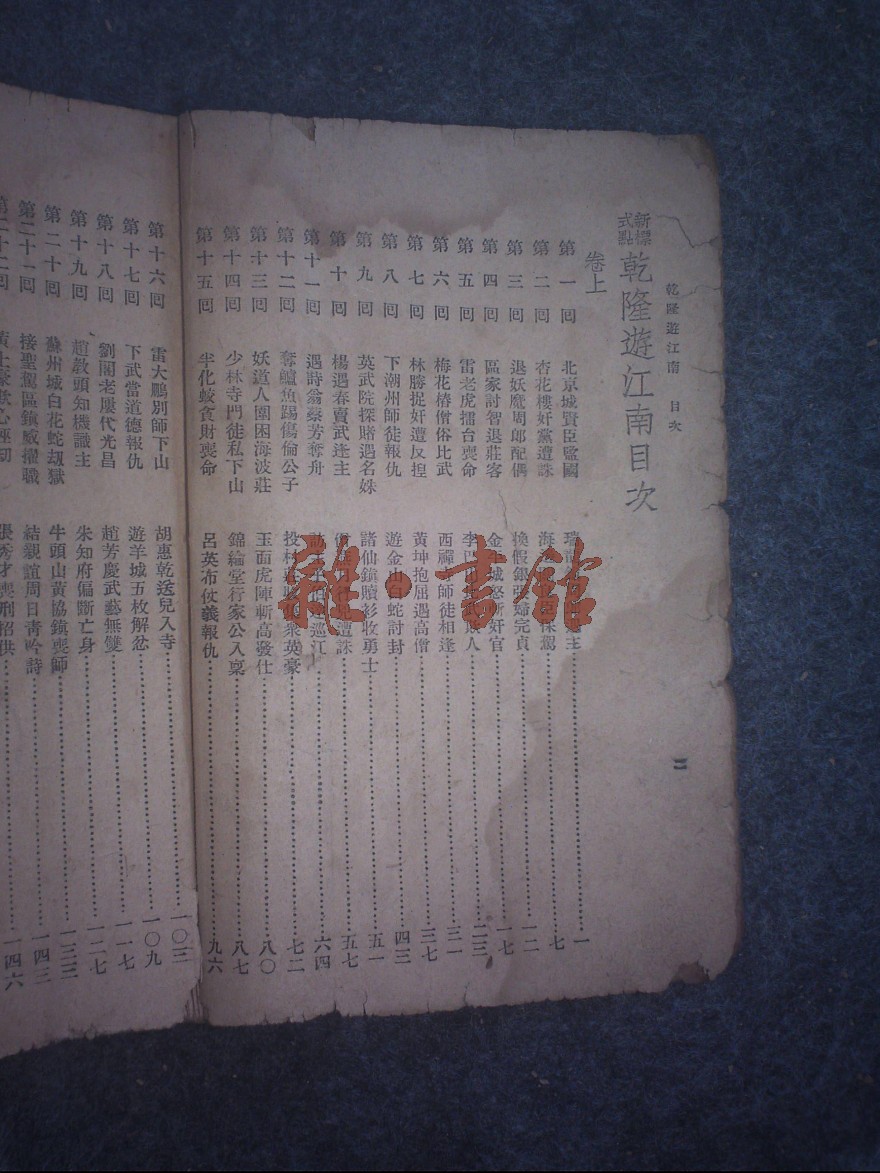 乾隆遊江南 目次
二
新式標點 乾隆遊江南目次
卷上
第一回 北京城賢臣監國 主 一
第二回 杏花樓奸黨遭誅 海 保駕 七
第三回 退妖魔周郎配偶 換假銀 完貞 一二
第四回 區家討智退莊客 金 城怒斬奸官 一七
第五回 雷老虎擂台喪命 李巴山 人 二三
第六回 梅花樁僧俗比武 西禪 師徒相逢 三一
第七回 林勝捉奸遭反捏 黃坤抱屈遇高僧 三七
第八回 下潮州師徒報仇 遊金山白蛇討封 四三
第九回 英武院探賭遇名姝 諸仙鎮贖衫收勇士 五一
第十回 楊遇春賣武逢主 遭誅 五七
第十一回 遇詩翁蔡芳奪舟 巡江 六四
第十二回 奪鱸魚踢傷倫公子 投 衆英豪 七二
第十三回 妖道人圍困海波莊 玉面虎陣斬高發仕 八〇
第十四回 少林寺門徒私下山 錦綸堂行家公入稟 八七
第十五回 半化蛟貪財喪命 呂英布仗義報仇 九六
第十六回 雷大鵬別師下山 胡惠乾送兒入寺 一〇三
第十七回 下武當道德報仇 遊羊城五枚解忿 一〇九
第十八回 劉閣老屢代光昌 趙芳慶武藝無雙 一一七
第十九回 趙教頭知機識主 朱知府偏斷亡身 一二七
第二十回 蘇州城白花蛇劫獄 牛頭山黃協鎮喪師 一三三
第二十一回 接聖駕區鎮威擢職 結親誼周日青吟詩 一四三
第二十二回 黃土豪欺心誣 張秀才喪刑招供 一四六
雜·書館